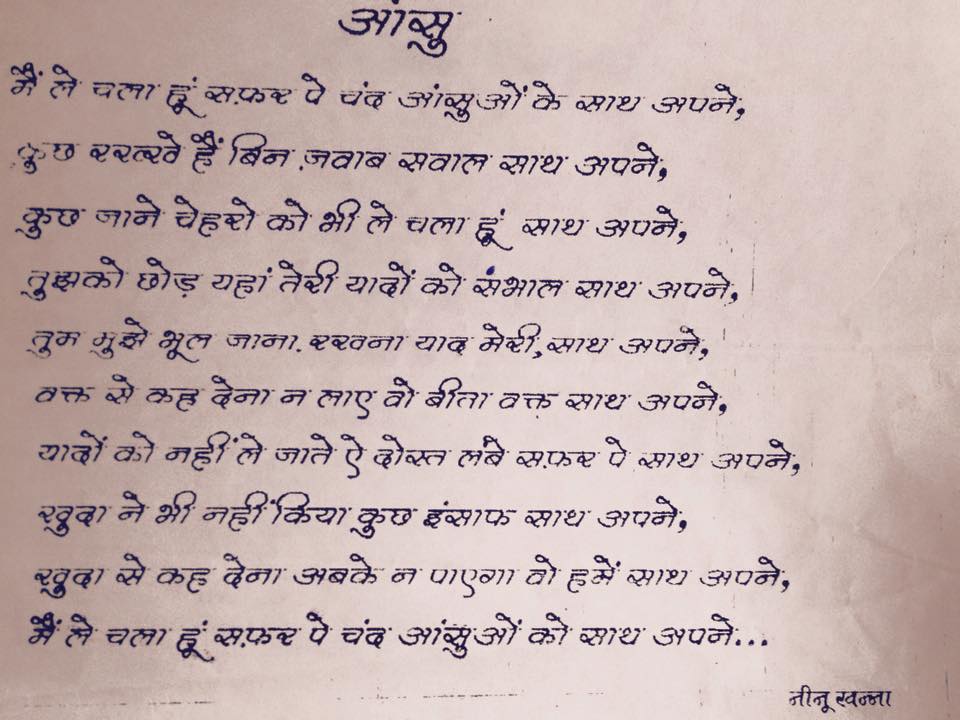 आंसु
मैं ले चला हूं सफ़र पे चंद आंसुओं के साथ अपने,
कुछ रख्खे हैं बिन ज़वाब सवाल साथ अपने,
कुछ जाने चेहरो को भी ले चला हूं साथ अपने,
तुझको छोड़ यहां तेरी यादों को संभाल साथ अपने,
तुम मुझे भूल जाना. रखना याद मेरी, साथ अपने,
वक्त से कह देना न लाए वो बीता वक्त साथ अपने,
यादों को नहीं ले जाते ऐ दोस्त लंबे सफ़र पे साथ अपने,
खुदा ने भी नहीं किया कुछ इंसाफ साथ अपने,
खुदा से कह देना अबके न पाएगा वो हमें साथ अपने,
मैं ले चला हूं सफ़र पे चंद आंसुओं को साथ अपने...
नीनू खन्ना